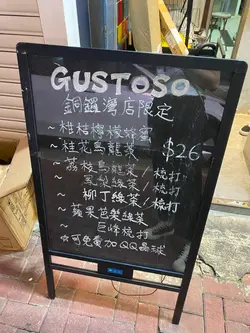 GUSTOSO
銅鑼灣店限定
~桂花烏龍茶 $26-
~荔枝烏龍茶/梳打
~ 綠茶/梳打
~ 柳丁綠茶/梳打
~ 蘋果芭樂綠茶
~ 巨峰梳打
☆可免費加QQ晶球